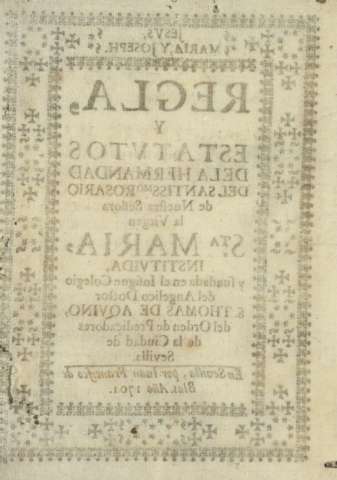 JESVS,
MARIA, Y JOSEPH.
REGLA,
Y
ESTATVTOS
DE LA HERMANDAD
DEL SANTISS.MO ROSARIO
de Nuestra Señora
la Virgen
S.TA MARIA,
INSTITVIDA,
y fundada en el Insigne Colegio
del Angelico Doctor
S. THOMAS DE AQVINO,
del Orden de Predicadores
de la Ciudad de
Sevilla.
En Sevilla, por Iuan Francisco de
Blas. Año 1701.